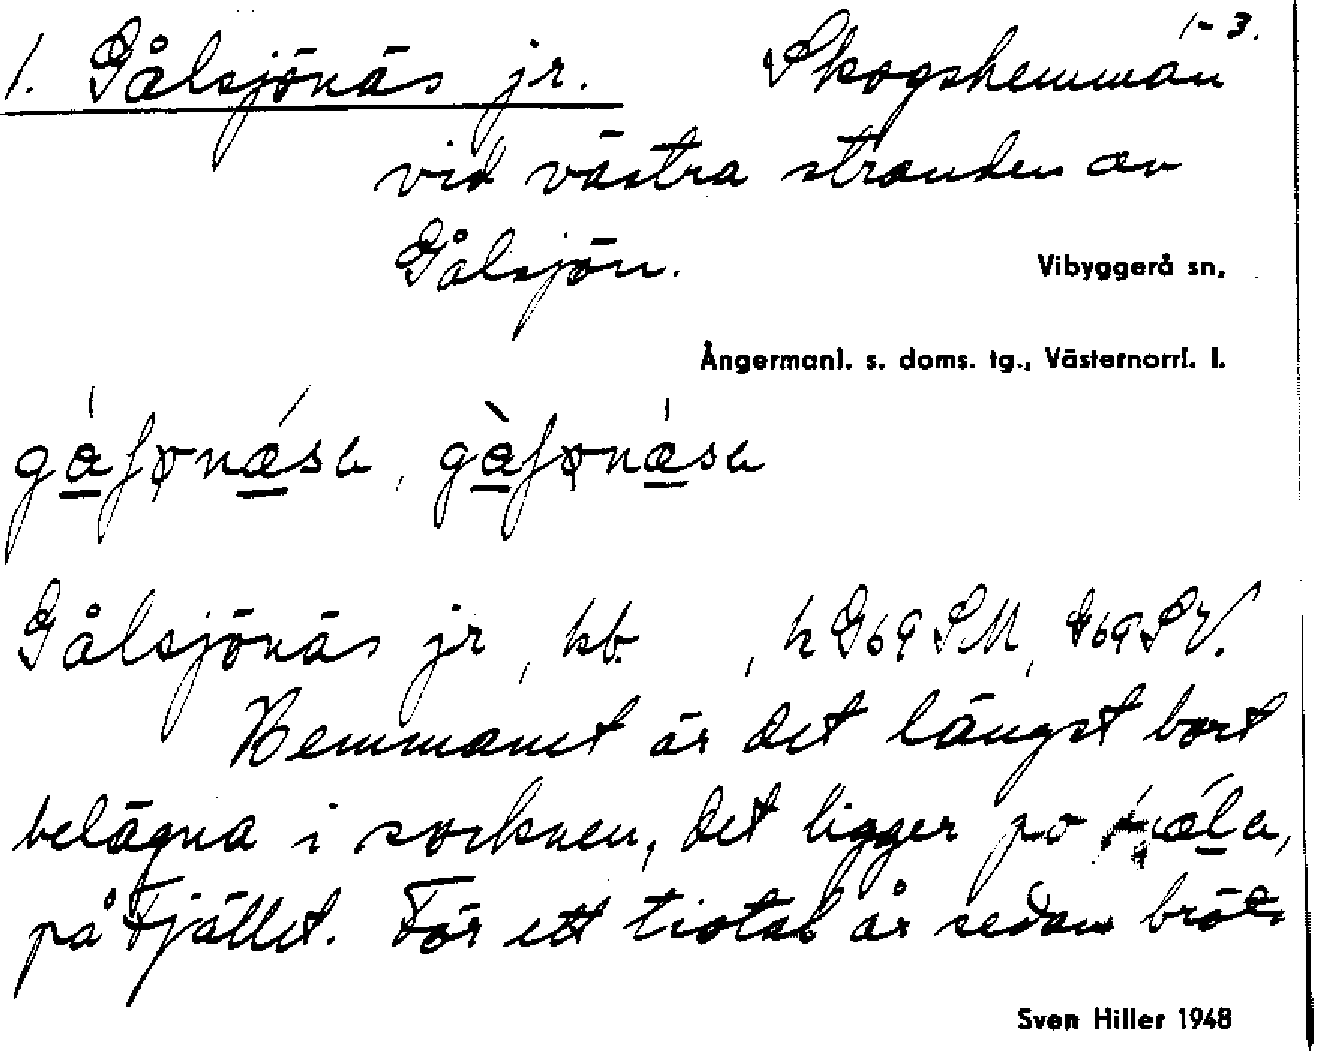 1-3.
1. Gålsjönäs jr. Skogshemman
vid västra stranden av
Gålsjön.
Vibyggerå sn.
Ångermanl. s. doms. tg., Västernorrl. l.
Gålsjönäs jr, kb. , h G69 SM, G69 SV.
Hemmanet är det längst bort
belägna i socknen, det ligger po
på Fjället. För ett tiotal år sedan bröts
Sven Hiller 1948